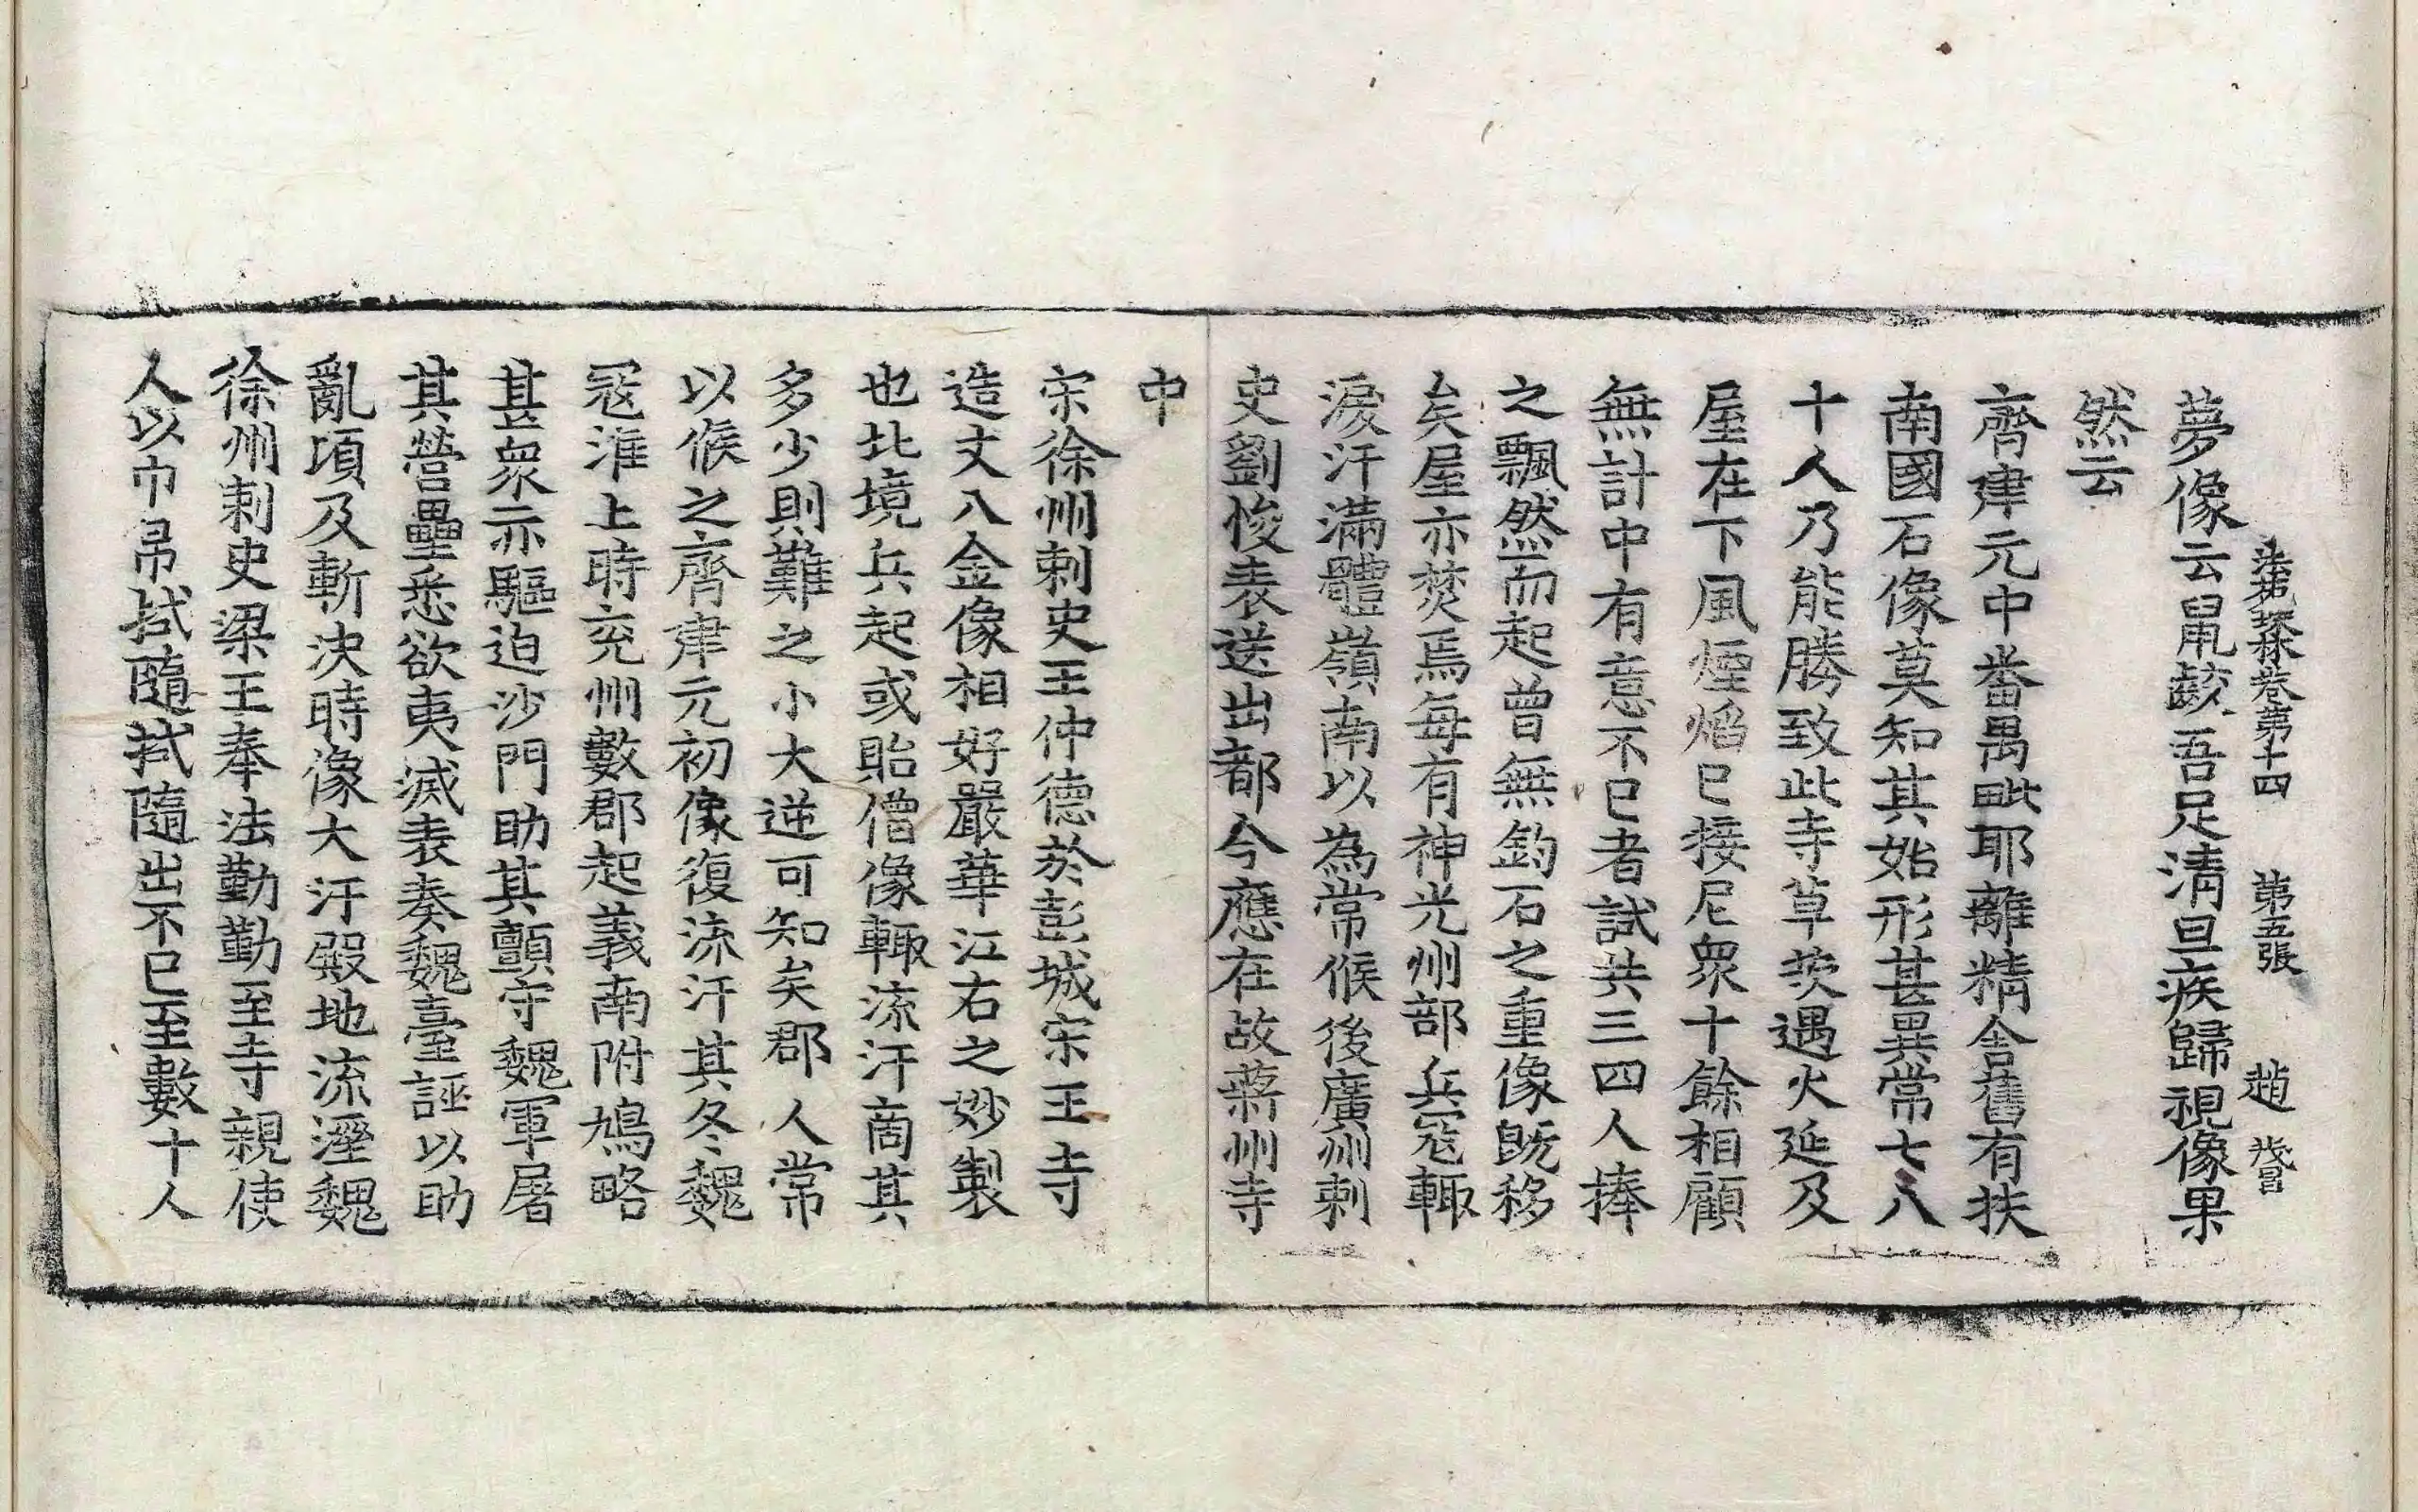 法苑珠林卷第十四 第五張 趙
夢像云鼠齩吾足清旦疾歸視像果
然云
齊建元中番禺毗耶離精舍舊有扶
南國石像莫知其始形甚異常七八
十人乃能勝致此寺草茨遇火延及
屋在下風煙焰已接尼衆十餘相顧
無計中有意不已者試共三四人捧
之飄然而起曾無鈞石之重像旣移
矣屋亦焚焉每有神光州部兵寇輙
淚汗滿體嶺南以為常候後廣州刺
史劉悛表送出都今應在故蔣州寺
中
宋徐州刺史王仲德於彭城宋王寺
造丈八金像相好嚴華江右之妙製
也北境兵起或貽僧像輙流汗啇其
多少則難之小大逆可知矣郡人常
以候之齊建元初像復流汗其冬魏
冦淮上時兖州數郡起義南附鳩略
甚衆亦驅迫沙門助其顫守魏軍屠
其營壘悉欲夷滅表奏魏臺誣以助
亂項及斬決時像大汗殿地流溼魏
徐州刺史梁王奉法勤勤至寺親使
人以巾帛拭隨拭隨出不已至數十人